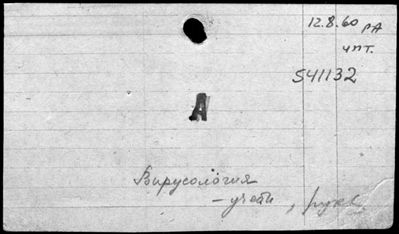 12.8.60 РА
чпт.
541132
А
Вирусология
– учебн, рук